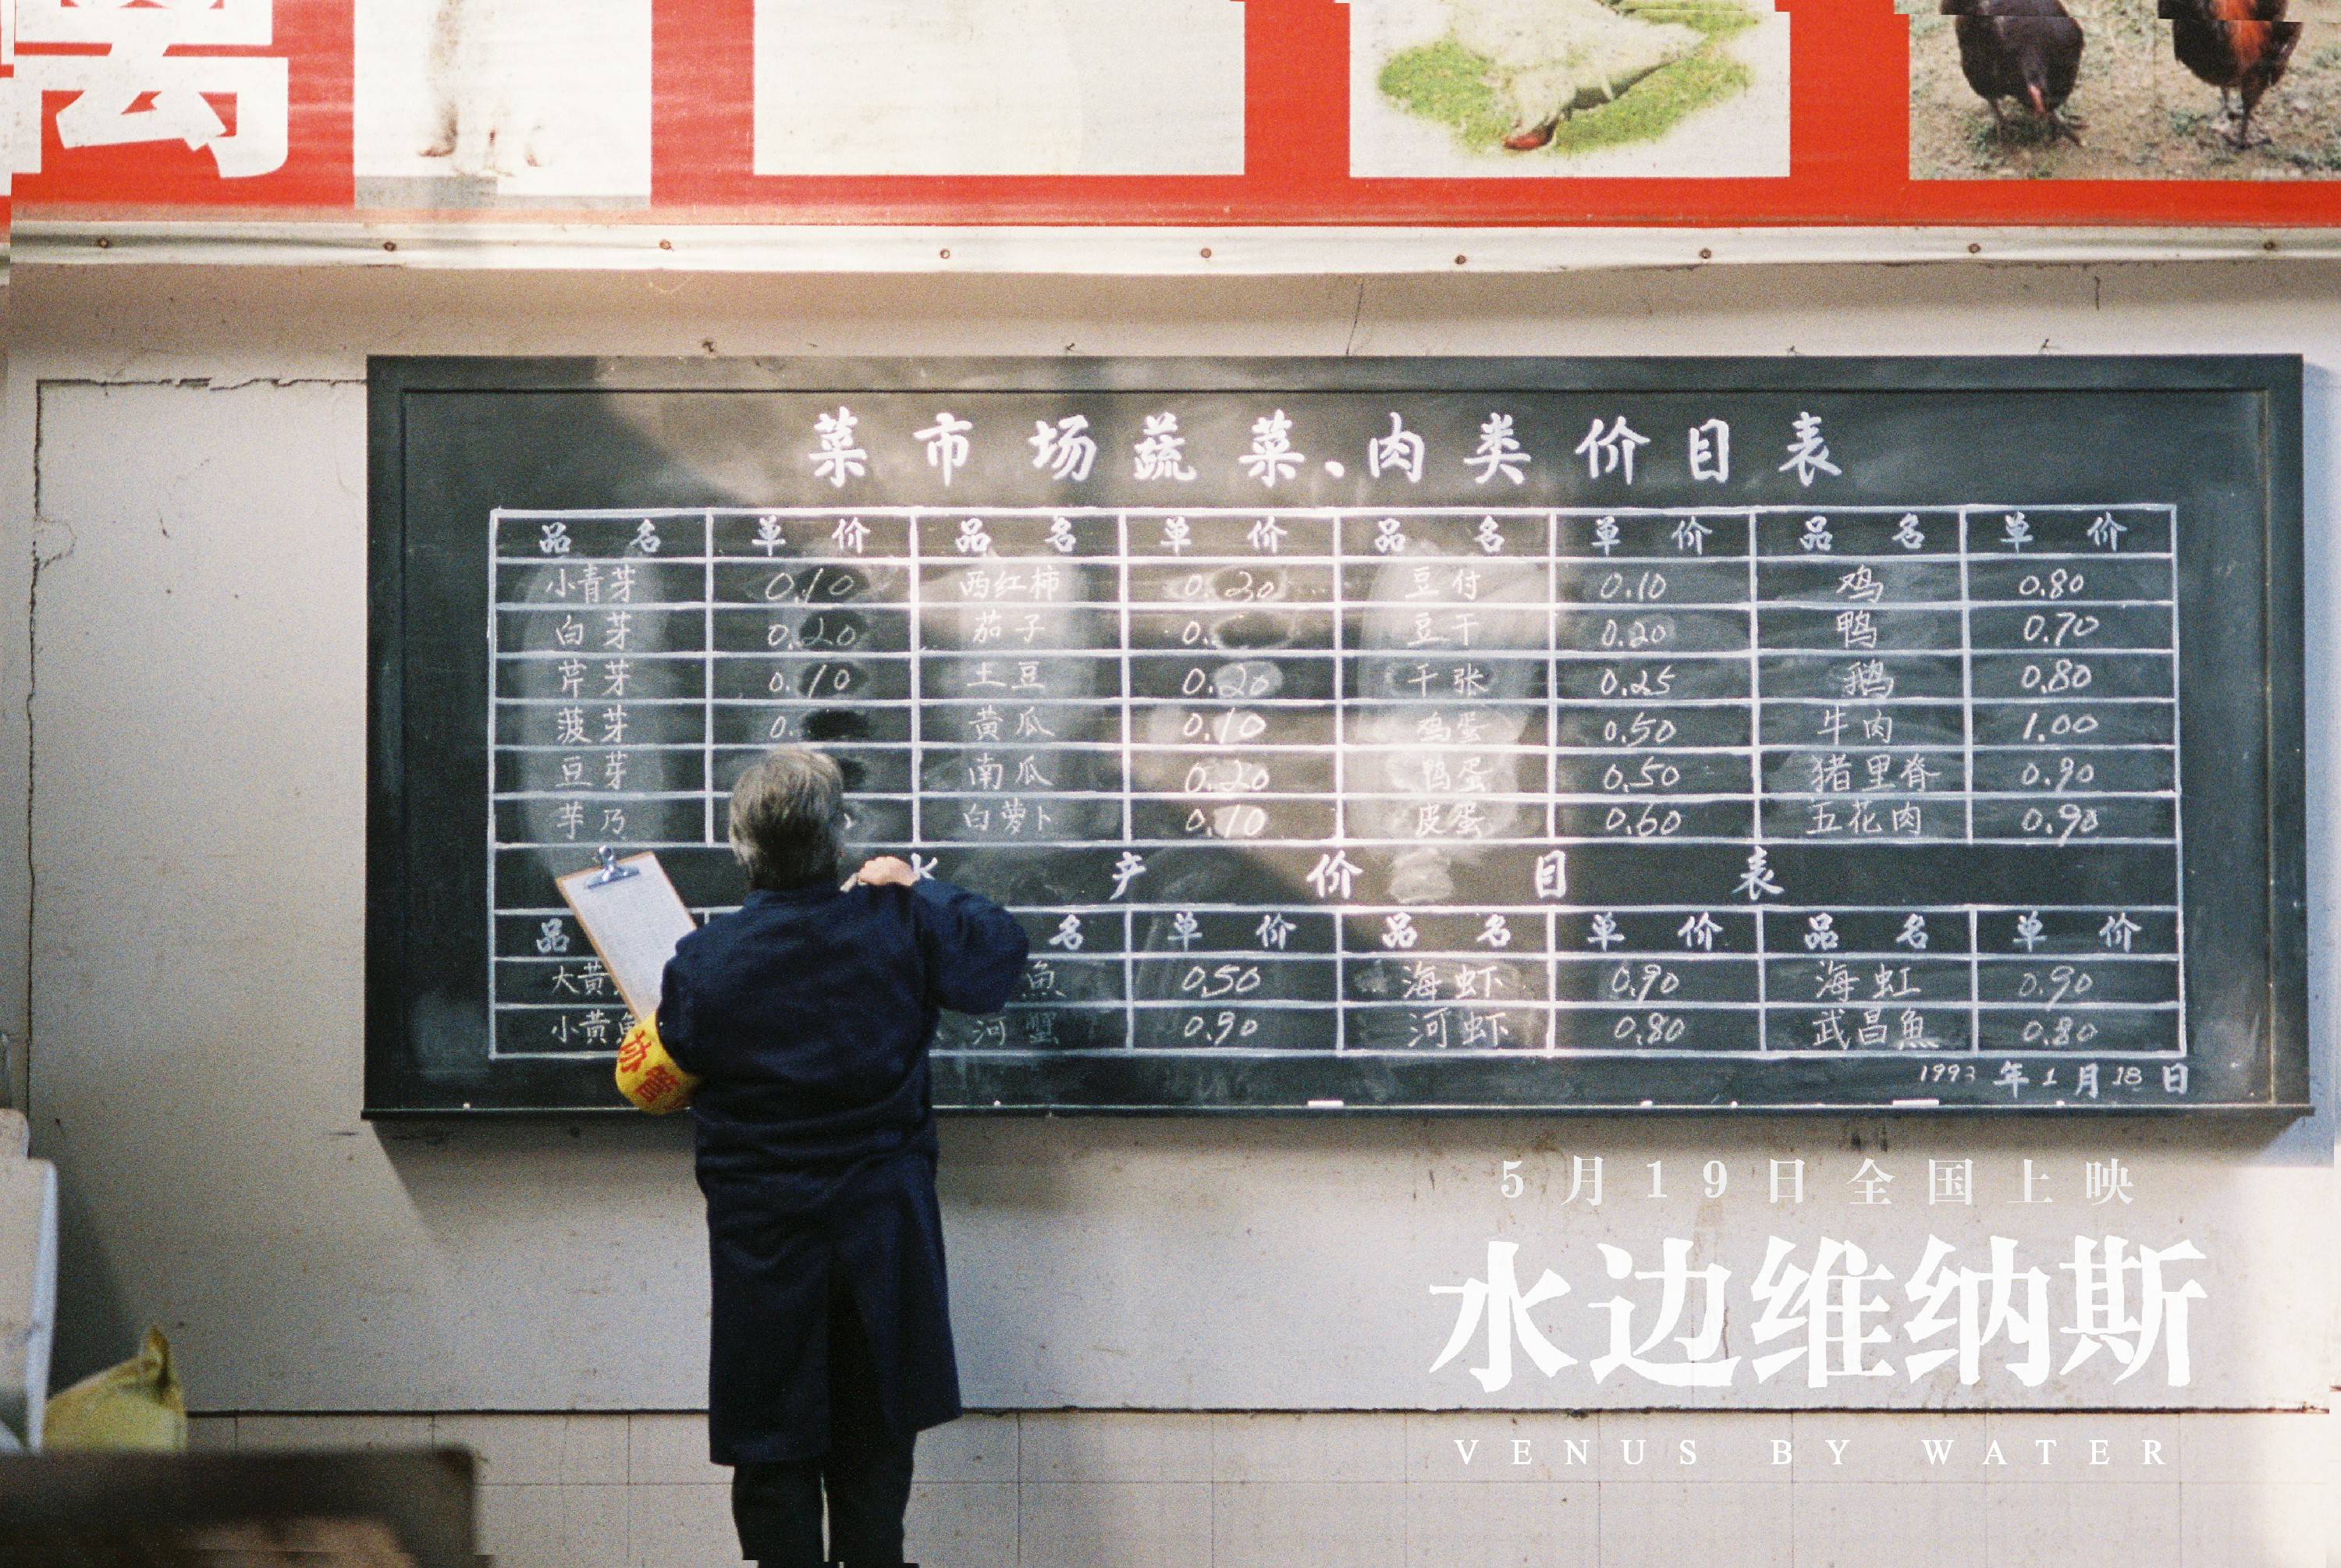 禽
菜市场蔬菜、肉类价目表
品名 单价 品名 单价 品名 单价 品名 单价
小青芽 0.10 西红柿 0.20 豆付 0.10 鸡 0.80
白芽 0.20 茄子 0. 豆干 0.20 鸭 0.70
芹芽 0.10 土豆 0.20 千张 0.25 鹅 0.80
菠芽 0. 黄瓜 0.10 鸡蛋 0.50 牛肉 1.00
豆芽 南瓜 0.20 鸭蛋 0.50 猪里脊 0.90
芋乃 白萝卜 0.10 皮蛋 0.60 五花肉 0.90
水产价目表
品 名 单价 品名 单价 品名 单价
大黄 魚 0.50 海虾 0.90 海虹 0.90
小黄魚 河蟹 0.90 河虾 0.80 武昌魚 0.80
1993年1月18日
协管
5月19日全国上映
水边维纳斯
VENUS BY WATER